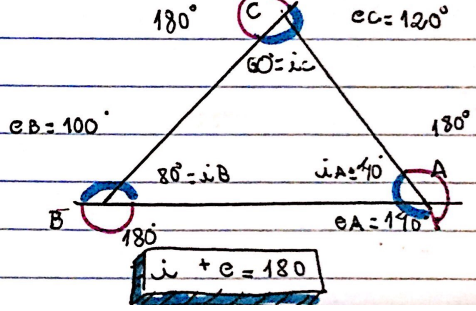 180° C eC=120°
60°=iC
eB=100° 180°
80°=iB iA=40° A
B eA=140°
180°
i + e = 180